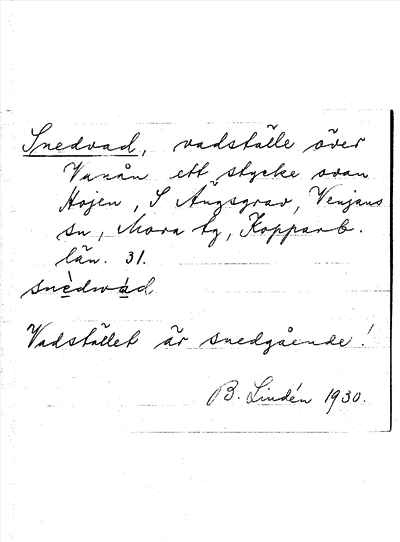 Snedvad, vadställe över
Vanån ett stycke ovan
Höjen, S Ängsgrav, Venjans
sn, Mora tg, Kopparb.
län. 31.
snèdwád
Vadstället är snedgående!
B. Lindén 1930.